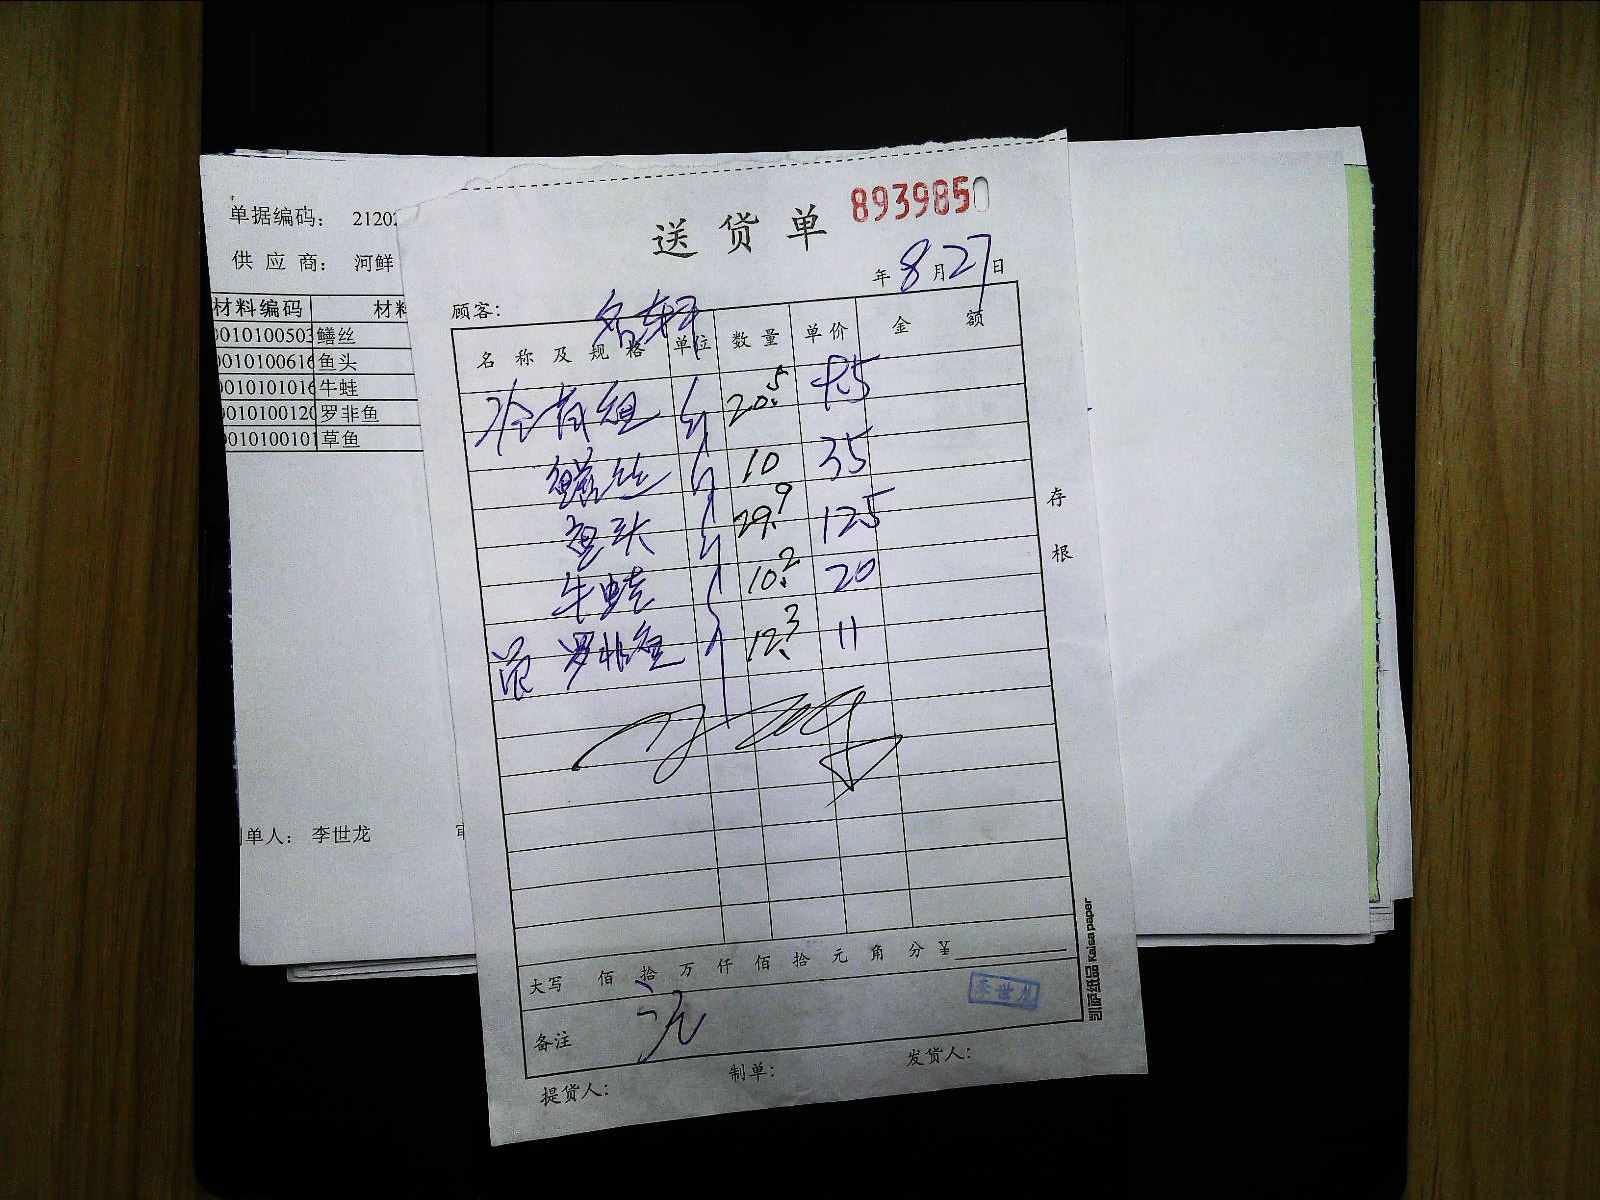 单据编码： 21202
供 应 商： 河鲜
材料编码 材料
0010100503 鳝丝
0010100616 鱼头
0010101016 牛蛙
0010100120 罗非鱼
0010100101 草鱼
制单人： 李世龙
送货单 8939850
年 8 月 27 日
顾客：
名称及规格 单位 数量 单价 金额
20.5
鳝丝 10 35
鱼头 29.9 125
牛蛙 10.2 20
罗非鱼 12.3 11
存根
大写 佰 拾 万 仟 佰 拾 元 角 分 ¥
李世龙
备注
提货人： 制单： 发货人：
凯萨纸品 Kaisa paper